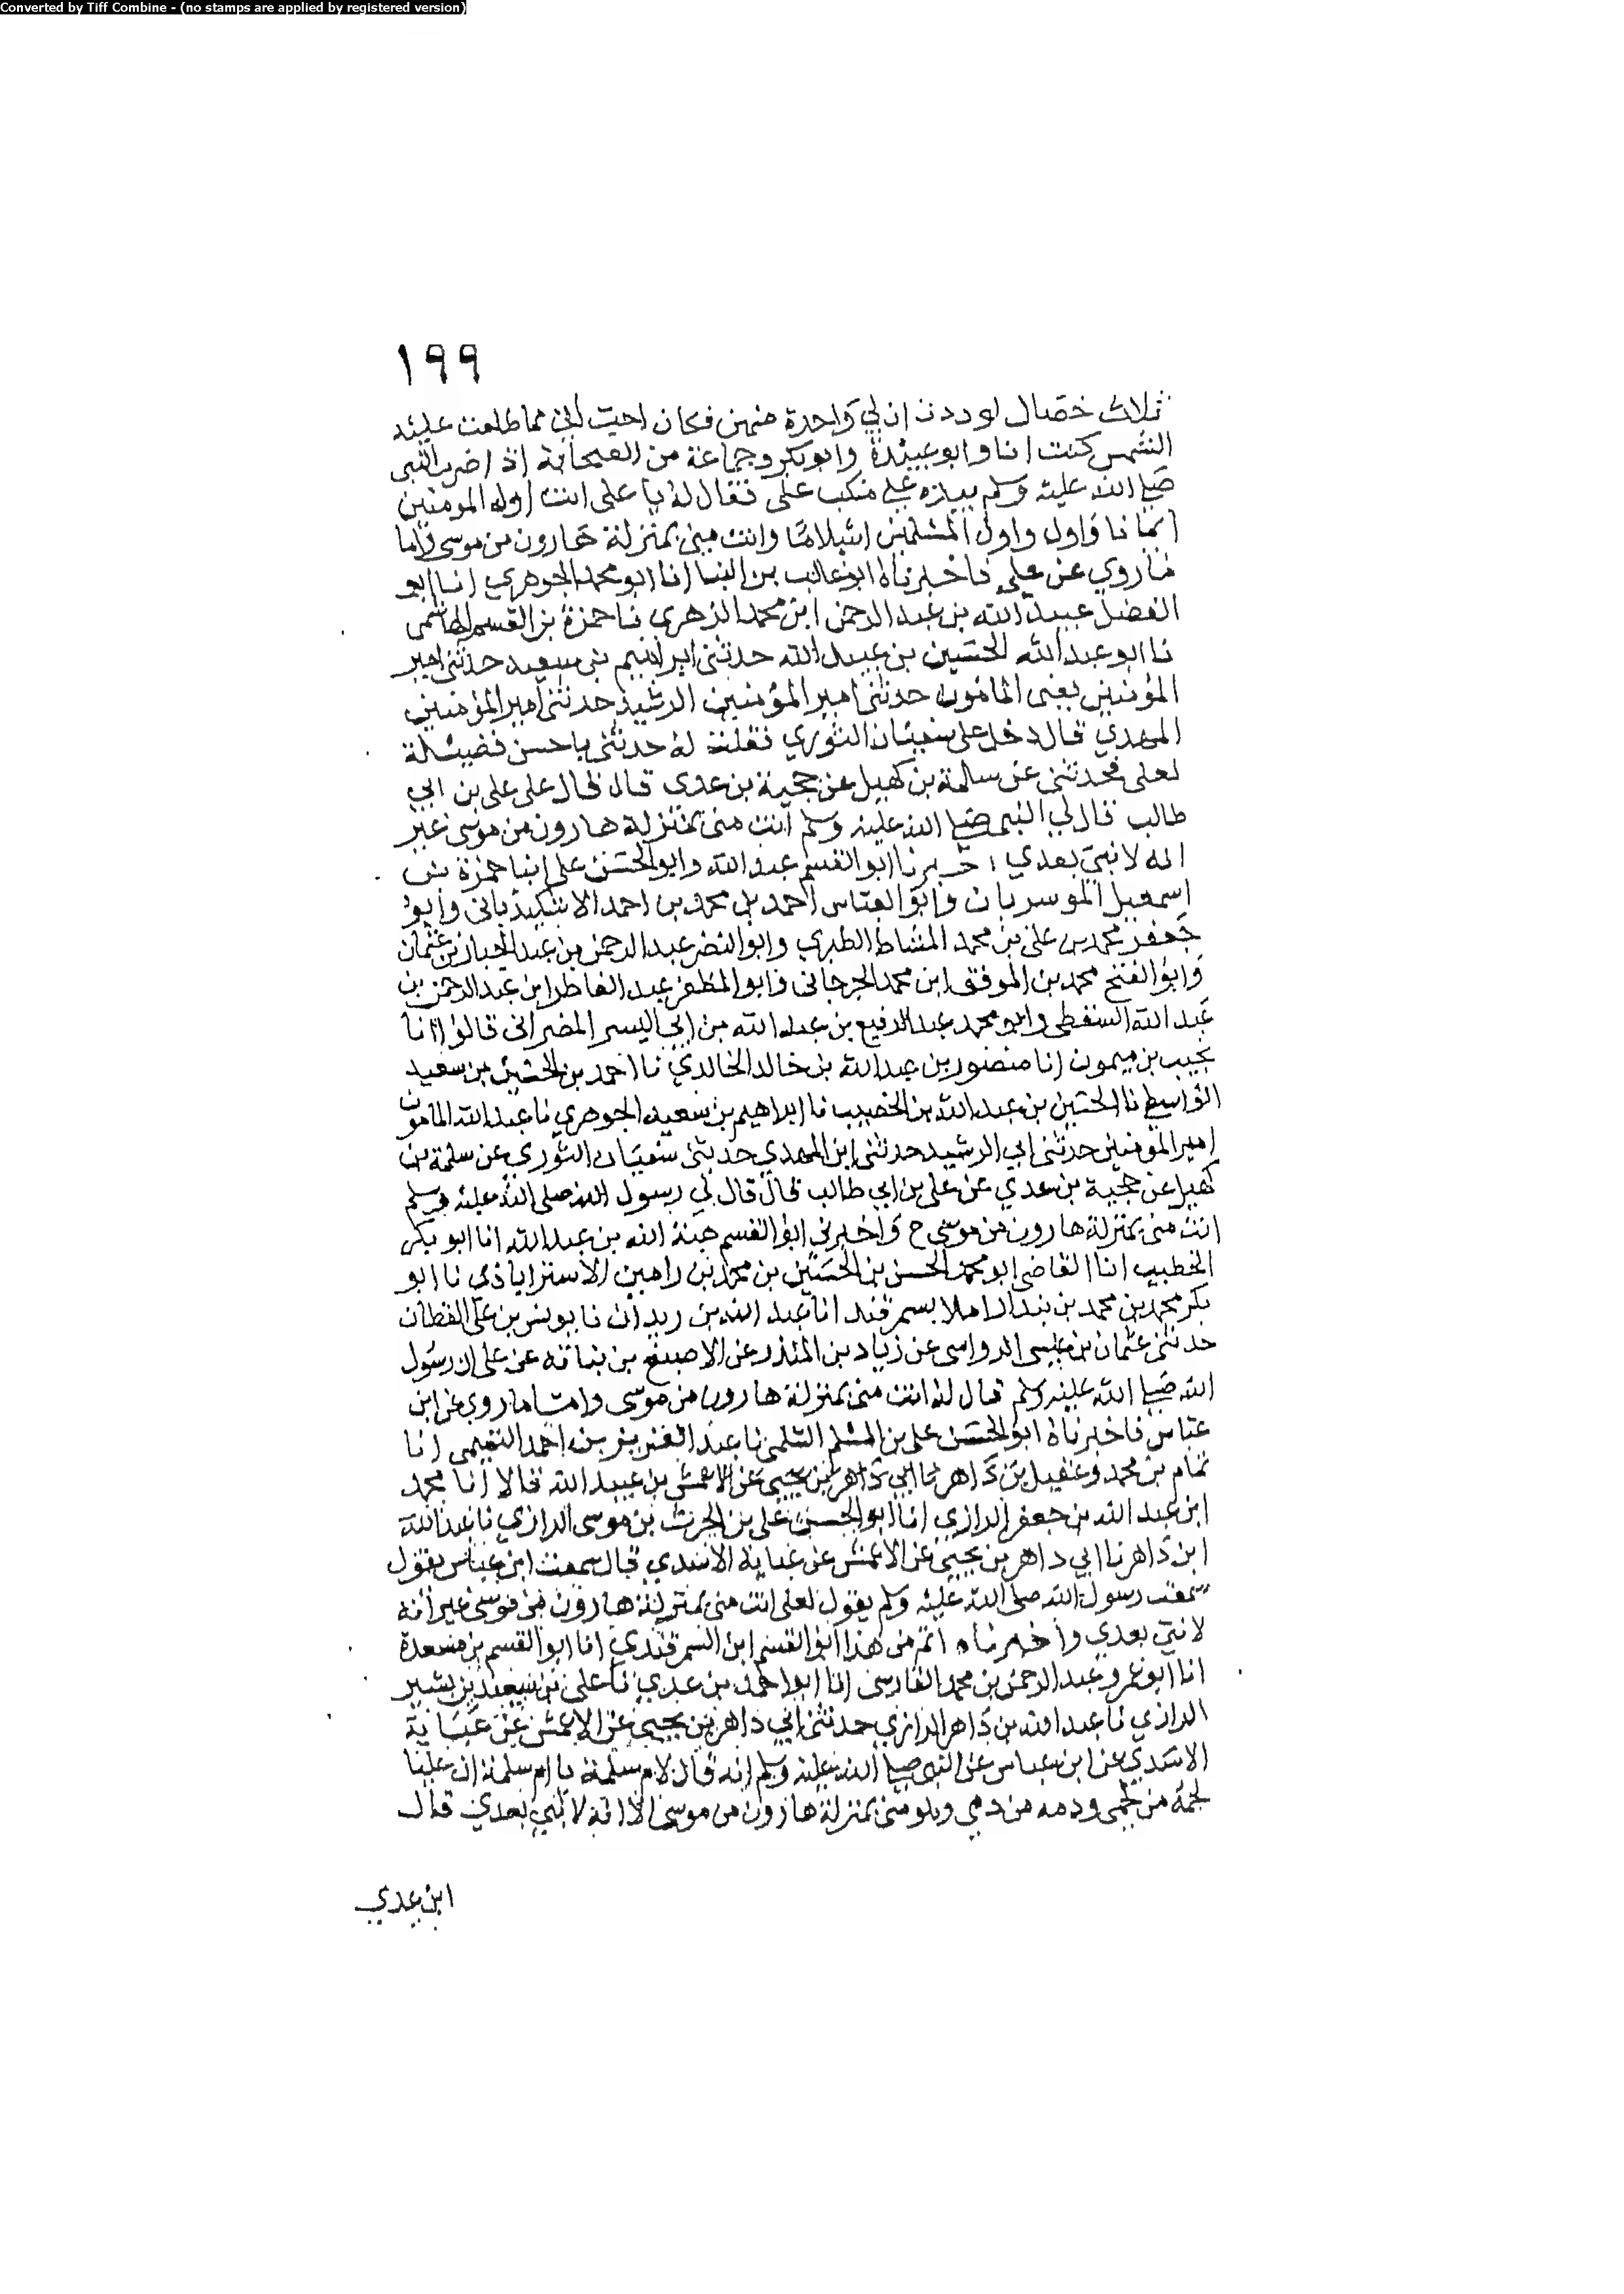 Converted by Tiff Combine - (no stamps are applied by registered version)
١٩٩
ثلاث خصال لوددت ان لي واحدة منهن فكان احب الى مما طلعت عليه
الشمس كنت انا وابو عبيدة وابو بكر وجماعة من الصحابة إذ ضرب النبى
صلى الله عليه وسلم بيده على منكب على فقال له يا على انت اول المومنين
ايمانا واول المسلمين اسلاما وانت منى بمنزلة هارون من موسى واما
ما روي عن علي فاخبرناه ابو غالب بن البنا انا ابو محمد الجوهري انا ابو
الفضل عبيد الله بن عبد الرحمن ابن محمد الزهرى نا حمزة بن القسم الهاشمى
نا ابو عبد الله الحسين بن عبيد الله حدثنى ابراهيم بن سعيد حدثنى امير
المؤمنين يعنى المامون حدثنى امير المؤمنين الرشيد حدثنى امير المؤمنين
المهدي قال دخل على سفيان الثوري فقلت له حدثنى باحسن فضيلة
لعلى فحدثنى عن سلمة بن كهيل عن حجية بن عدى قال قال على على بن ابي
طالب قال لي النبي صلى الله عليه وسلم انت منى بمنزلة هارون من موسى غير
انه لا نبي بعدي اخبرنا ابو القسم عبد الله وابو الحسن على ابنا حمزة بن
اسمعيل الموسويان وابو العباس احمد بن محمد بن احمد الاشكيذباني وابو
جعفر محمد بن على بن محمد المشاط الطبري وابو النضر عبد الرحمن بن عبد الجبار بن عثمان
وابو الفتح محمد بن الموفق ابن محمد الجرجانى وابو المظفر عبد الفاطر ابن عبد الرحمن بن
عبد الله السقطى وابو محمد عبد الرفيع بن عبد الله بن ابي اليسر قالوا انا
نجيب بن ميمون انا منصور بن عبد الله بن خالد الخالدي نا احمد بن الحسين بن سعيد
الواسطى نا الحسين بن عبد الله بن الخصيب نا ابراهيم بن سعيد الجوهري نا عبد الله المامون
امير المؤمنين حدثنى ابي الرشيد حدثنى ابن المهدي حدثنى سفيان الثوري عن سلمة بن
كهيل عن حجية بن عدي عن على بن ابي طالب قال قال لي رسول الله صلى الله عليه وسلم
انت منى بمنزلة هارون من موسى ح واخبرنى ابو القسم هبة الله بن عبد الله انا ابو بكر
الخطيب انا القاضى ابو محمد الحسن بن الحسين بن محمد بن رامين الاستراباذى نا ابو
بكر محمد بن محمد بن بندار املا بسمرقند انا عبد الله بن زيدان نا يونس بن على القطان
حدثنى عثمان بن عيسى الرواسى عن زياد بن المنذر عن الاصبغ بن نباتة عن على ان رسول
الله صلى الله عليه وسلم قال له انت منى بمنزلة هارون من موسى واما ما روي عن ابن
عباس فاخبرناه ابو الحسن على بن المسلم السلمى نا عبد العزيز بن احمد التميمى انا
تمام بن محمد وعقيل بن ذاهر نا ابي ذاهر بن يحيى عن الاعمش بن عبيد الله قالا انا محمد
ابن عبد الله بن جعفر الرازى انا ابو الحسن على بن الحرث بن موسى الرازي نا عبد الله
ابن داهر نا ابي داهر بن يحيى عن الاعمش عن عباية الاسدي قال سمعت ابن عباس يقول
سمعت رسول الله صلى الله عليه وسلم يقول لعلى انت منى بمنزلة هارون من موسى غير انه
لا نبي بعدي واخبرناه اتم من هذا ابو القسم ابن السمرقندي انا ابو القسم بن مسعدة
انا ابو عمرو عبد الرحمن بن محمد الفارسى انا ابو احمد بن عدي نا على بن سعيد بن بشير
الرازي نا عبد الله بن داهر الرازي حدثنى ابي داهر بن يحيى عن الاعمش عن عباية
الاسدي عن ابن عباس عن النبى صلى الله عليه وسلم انه قال لام سلمة يا ام سلمة ان عليا
لحمه من لحمى ودمه من دمي وهو منى بمنزلة هارون من موسى الا انه لا نبي بعدي قال
ابن عدي